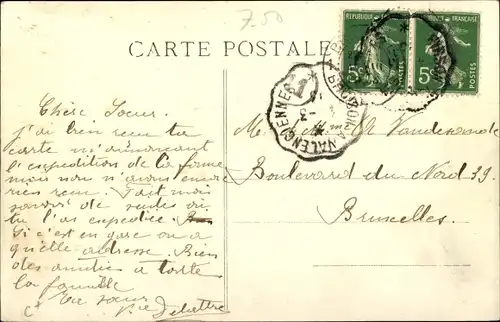 7.50
CARTE POSTALE
REPUBLIQUE FRANÇAISE
5c
POSTES
5c
POSTES
VALENCIENNES
Chère Soeur
J'ai bien reçu ta
carte m'annonçant
l'expedition de la
mais non n'avons encore
rien reçu. Fait moi
savoir de suite si
tu l'as expediée.
Si c'est en gare ou a
quelle adresse. Bien
des amitiés a toute
la famille
Ta soeur
Delattre
M. Mme
Boulevard du Nord 39
Bruxelles